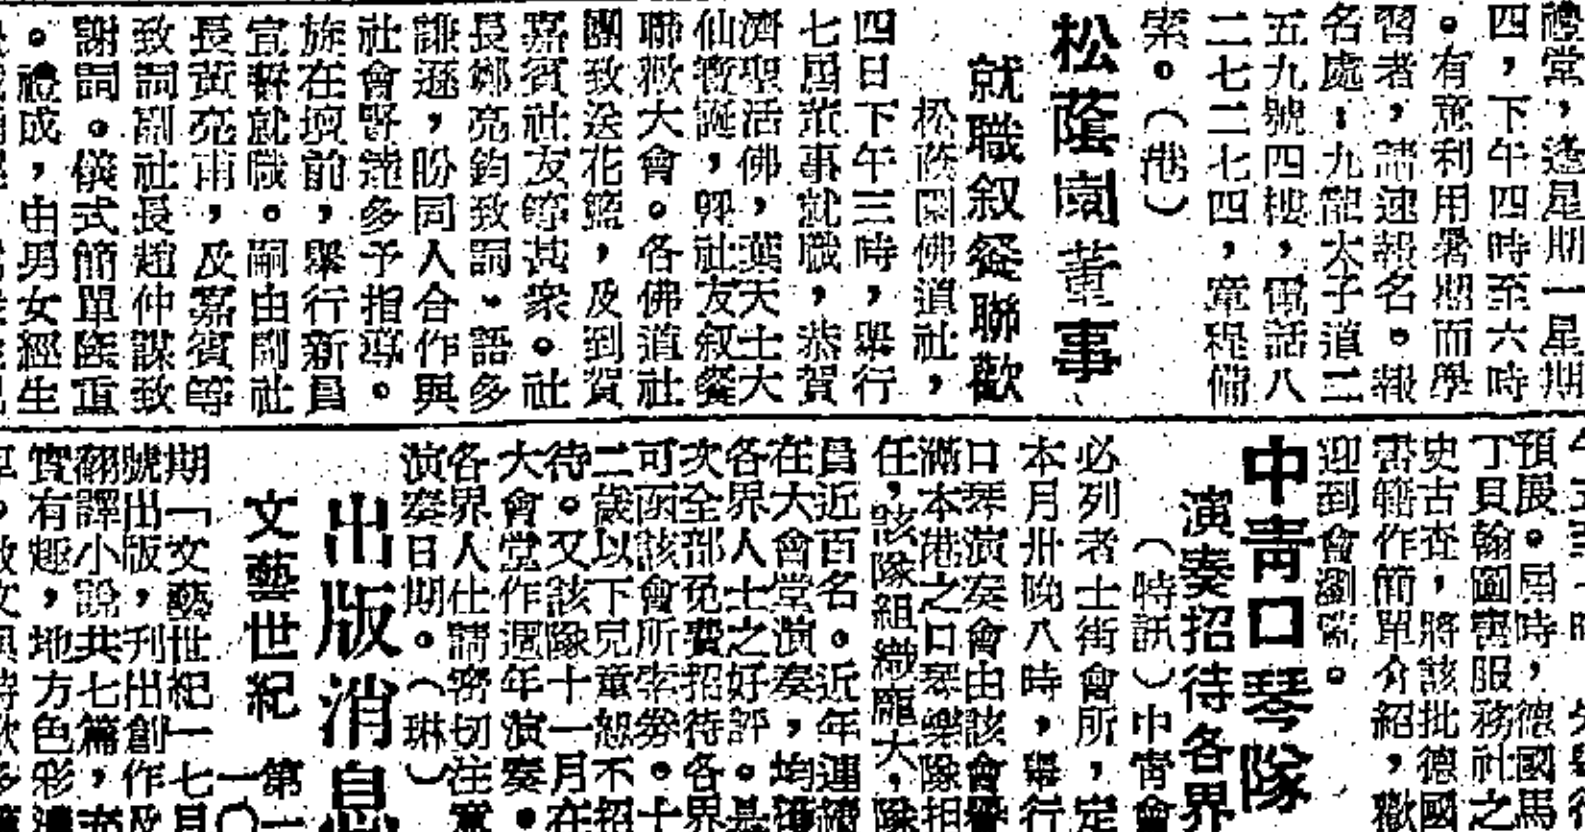 禮堂，逢星期一星期
四，下午四時至六時
。有意利用暑期而學
習者，請速報名。報
名處：九龍太子道二
五九號四樓，電話八
二七二二七四，章程備
索。（港）
松蔭園董事
就職叙餐聯歡
松蔭園佛道社，
四日下午三時，舉行
七屆董事就職，恭賀
濟聖活佛，葉天士大
仙寳誕，舉社友叙餐
聯歡大會。各佛道社
團致送花籃，及到賀
嘉賓社友等甚衆。社
長鄭亮鈞致詞。語多
謙遜，盼同人合作與
社會賢達多予指導。
族在壇前，舉行新員
宣誓就職。嗣由副社
長黃亮甫，及嘉賓等
致詞副社長趙仲謀致
謝詞。儀式簡單隆重
。禮成，由男女經生
預展。屆時，德國馬
丁貝翰圖書服務社之
史古查，將該批德國
書籍作簡單介紹，歡
迎到會瀏覽。
中靑口琴隊
演奏招待各界
（時訊）中靑會
必列者士街會所，定
本月卅晚八時，舉行
口琴演奏會由該會譽
滿本港之口琴樂隊担
任，該隊組織龐大，隊
員近百名。近年連續
在大會堂演奏，均獲
各界人士之好評。是
次全部免費招待各界
可函該會所索劵。十
二歲以下兒童恕不招
待。又該隊十一月在
大會堂作週年演奏。
各界人仕請密切注意
演奏日期。（琳）
出版消息
文藝世紀
第一
一〇
期「文藝世紀」七月
號出版，刊出創作及
翻譯小說共七篇，
實有趣，地方色彩濃